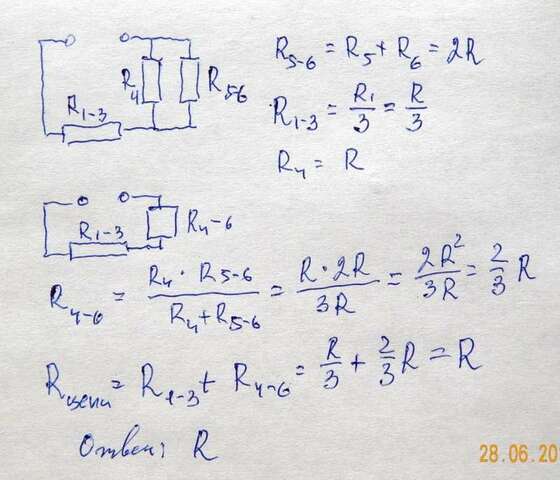 R₅₋₆ = R₅ + R₆ = 2R
R₄
R₅₋₆
R₁₋₃
R₁₋₃ = R₁/3 = R/3
R₄ = R
R₁₋₃
R₄₋₆
R₄₋₆ = R₄ · R₅₋₆ / R₄ + R₅₋₆ = R · 2R / 3R = 2R² / 3R = 2/3 R
Rцепи = R₁₋₃ + R₄₋₆ = R/3 + 2/3 R = R
Ответ: R
28.06.20